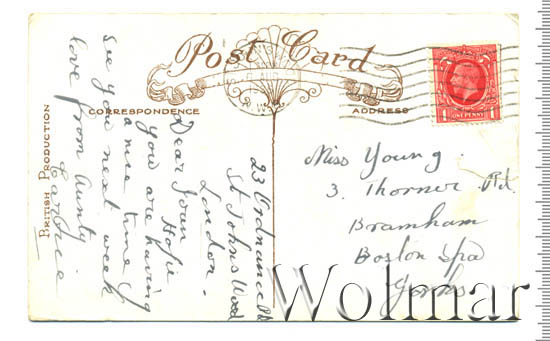 Post Card
CORRESPONDENCE
ADDRESS
BRITISH PRODUCTION
1 ONE PENNY 1
23 Ordnance Rd
St Johns Wood
London.
Dear Joan
Hope
you are having
a nice time &
see you next week
love from Aunty
Miss Young.
3. Thorner Rd.
Bramham
Boston Spa
Yorks
Wolmar